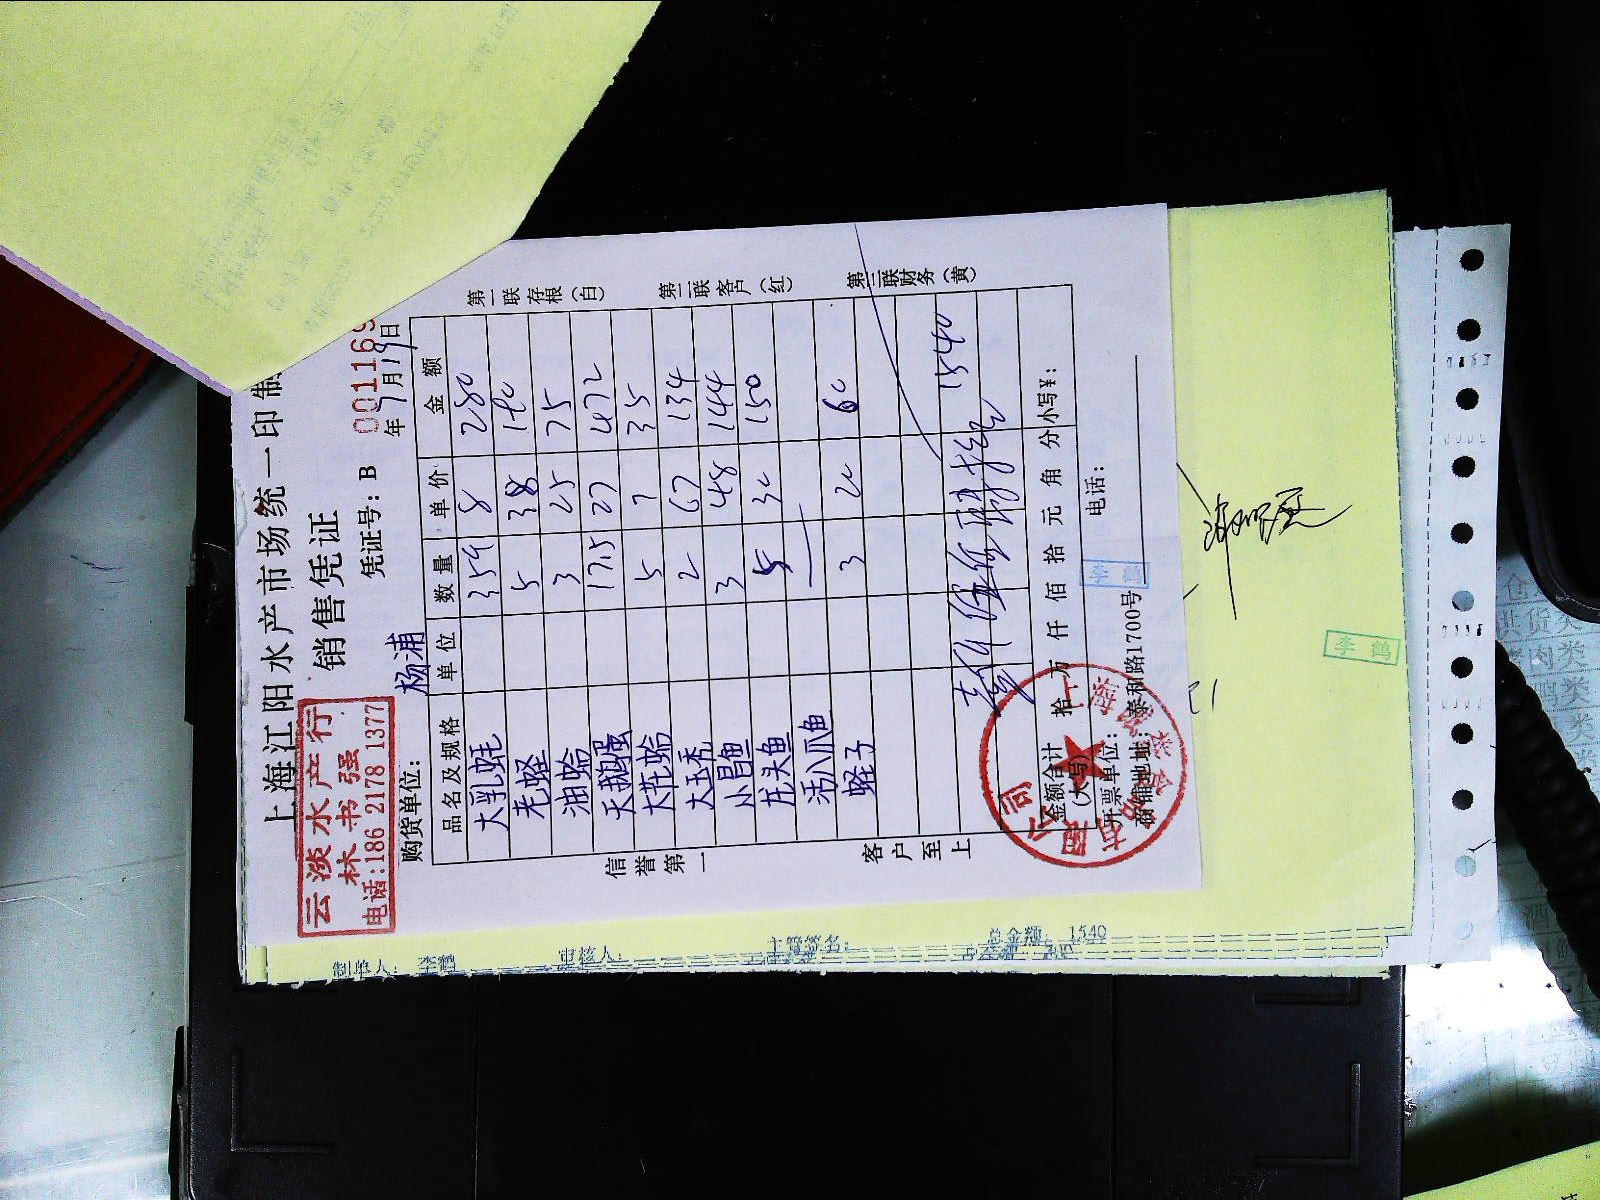 上海江阳水产市场统一印制
销售凭证
云淡水产行
林书强
电话:186 2178 1377
凭证号:B 001169
购货单位: 杨浦
年7月19日
品名及规格 单位 数量 单价 金额
大乳蚝 35只 8 280
老蛏 5 38 190
油蛤 3 25 75
天鹅蛋 17.5 27 472
大花蛤 5 7 35
大玉秃 2 67 134
小昌鱼 3 48 144
龙头鱼 5 30 150
活八爪鱼
蛏子 3 20 60
1540
金额合计(大写) 拾 万 仟 佰 拾 元 角 分 小写¥:
开票单位:
电话:
商铺地址:泰和路1700号
第一联存根(白)
第二联客户(红)
第三联财务(黄)
信誉第一
客户至上
李鹤
李鹤
制单人: 李鹤
审核人:
主管签名:
总金额: 1540
有限公司